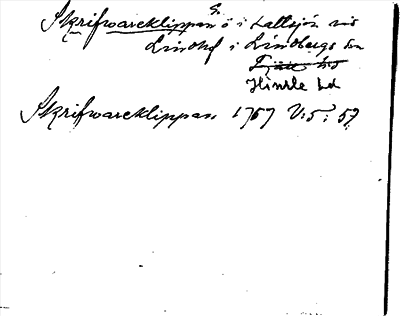 Skrifwareklippan ö i Lallsjön vid
Lindhof i Lindbergs sn
Himle hd
Skrifwareklippan 1757 V:5: 57